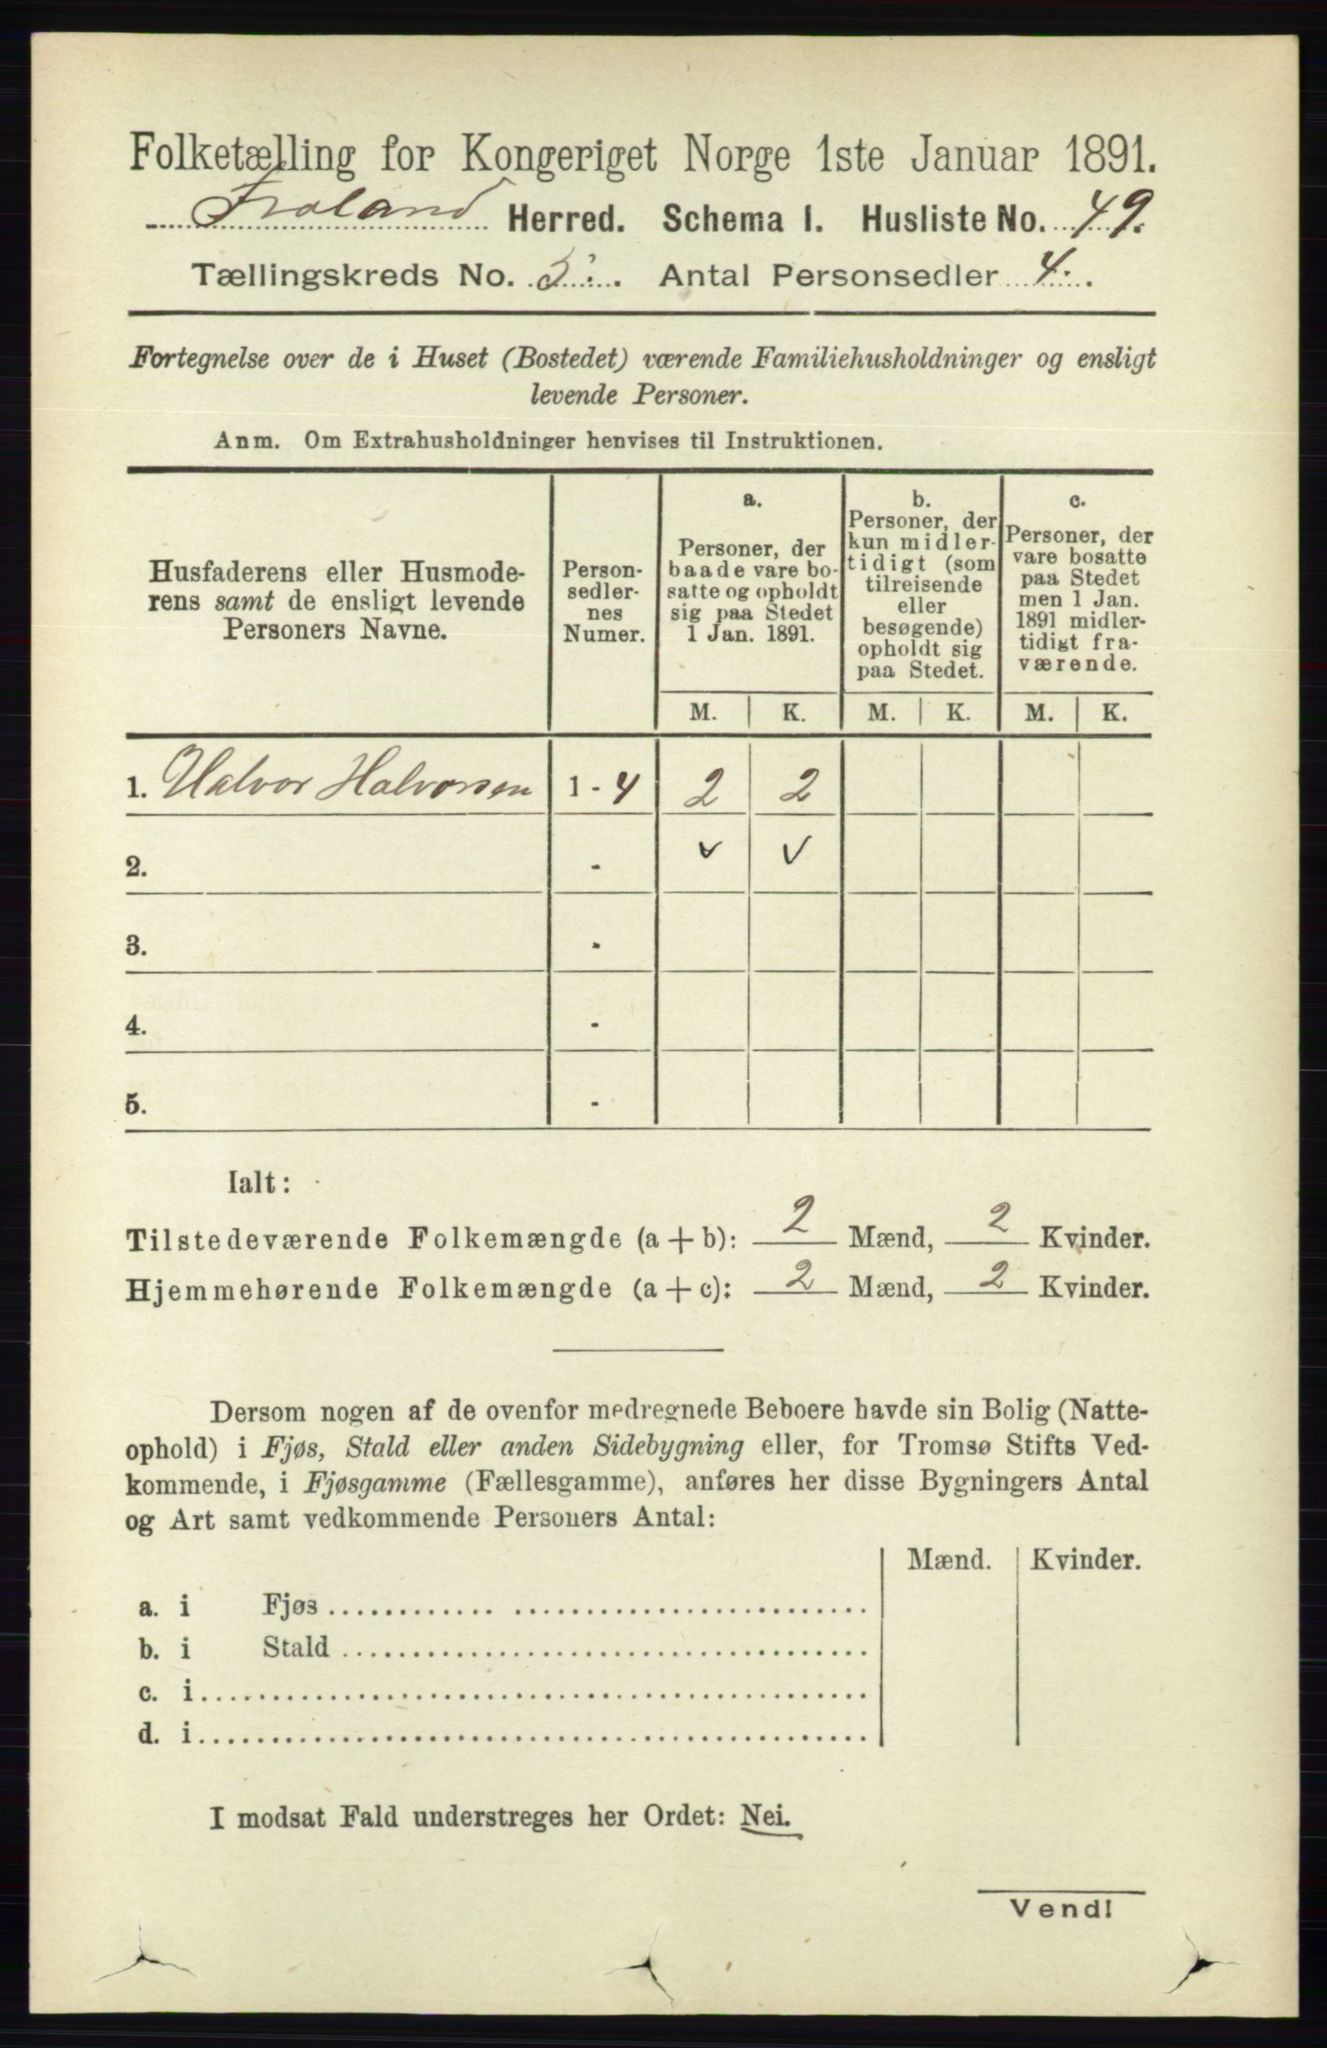 Folketælling for Kongeriget Norge 1ste Januar 1891.
Froland Herred. Schema 1. Husliste No. 49.
Tællingskreds No. 3. Antal Personsedler 4.
Fortegnelse over de i Huset (Bostedet) værende Familiehusholdninger og ensligt
levende Personer.
Anm. Om Extrahusholdninger henvises til Instruktionen.
Husfaderens eller Husmode-
rens samt de ensligt levende
Personers Navne.
Person-
sedler-
nes
Numer.
a.
Personer, der
baade vare bo-
satte og opholdt
sig paa Stedet
1 Jan. 1891.
b.
Personer, der
kun midler-
tidigt (som
tilreisende
eller
besøgende)
opholdt sig
paa Stedet.
c.
Personer, der
vare bosatte
paa Stedet
men 1 Jan.
1891 midler-
tidigt fra-
værende.
M. K. M. K. M. K.
1. Halvor Halvorsen 1 - 4 2 2
2. - ✓ ✓
3. -
4. -
5. -
Ialt:
Tilstedeværende Folkemængde (a + b): 2 Mænd, 2 Kvinder.
Hjemmehørende Folkemængde (a + c): 2 Mænd, 2 Kvinder.
Dersom nogen af de ovenfor medregnede Beboere havde sin Bolig (Natte-
ophold) i Fjøs, Stald eller anden Sidebygning eller, for Tromsø Stifts Ved-
kommende, i Fjøsgamme (Fællesgamme), anføres her disse Bygningers Antal
og Art samt vedkommende Personers Antal:
Mænd. Kvinder.
a. i Fjøs
b. i Stald
c. i
d. i
I modsat Fald understreges her Ordet: Nei.
Vend!